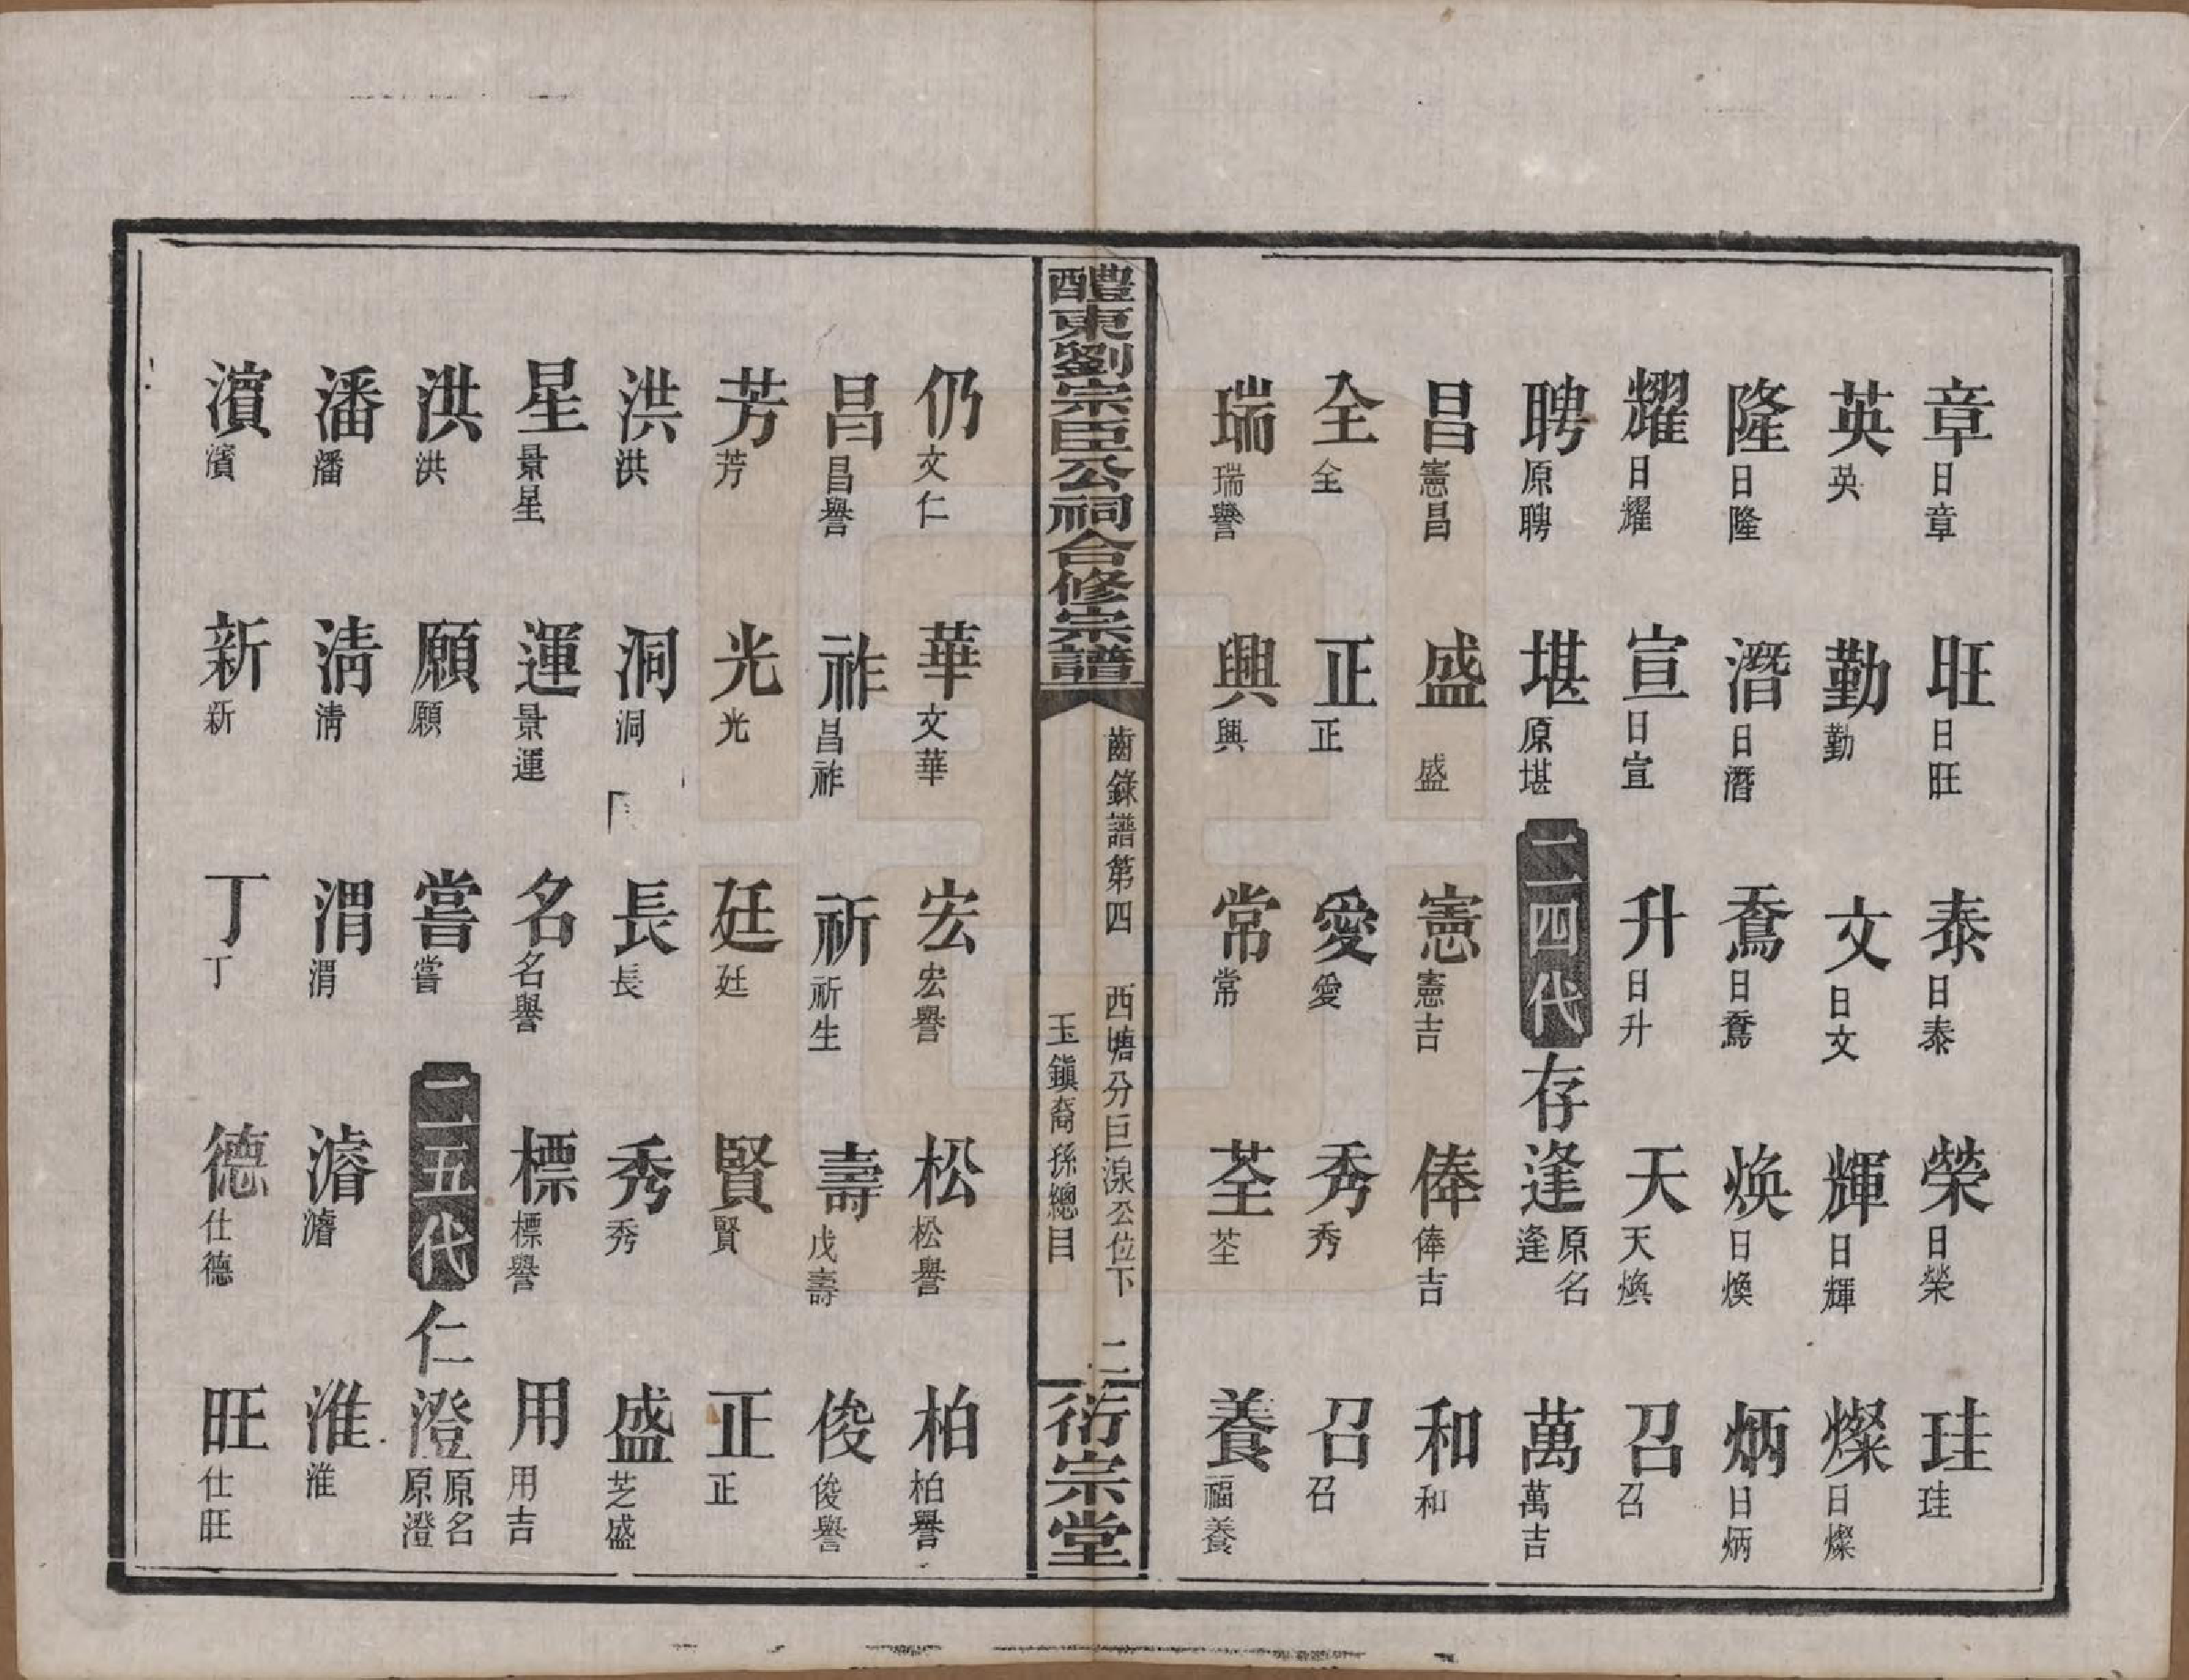 章日章 旺日旺 泰日泰 榮日榮 珪珪
英英 勤勤 文日文 輝日輝 燦日燦
隆日隆 潛日潛 鴌日鴌 煥日煥 炳日炳
耀日耀 宣日宣 升日升 天天煥 召召
聘原聘 堪原堪 二四代 存逢原名逢 萬萬吉
昌憲昌 盛盛 憲憲吉 俸俸吉 和和
全全 正正 愛愛 秀秀 召召
瑞瑞譽 興興 常常 荃荃 養福養
醴東劉宗臣公祠合修宗譜 齒錄譜第四 西塘分巨湶公位下 玉鎭裔孫總目 二 衍宗堂
仍文仁 華文華 宏宏譽 松松譽 柏柏譽
昌昌譽 祚昌祚 祈祈生 壽戊壽 俊俊譽
芳芳 光光 廷廷 賢賢 正正
洪洪 洞洞 長長 秀秀 盛芝盛
星景星 運景運 名名譽 標標譽 用用吉
洪洪 願願 嘗嘗 二五代 仁澄原名原澄
潘潘 淸淸 渭渭 濬濬 淮淮
濵濵 新新 丁丁 德仕德 旺仕旺